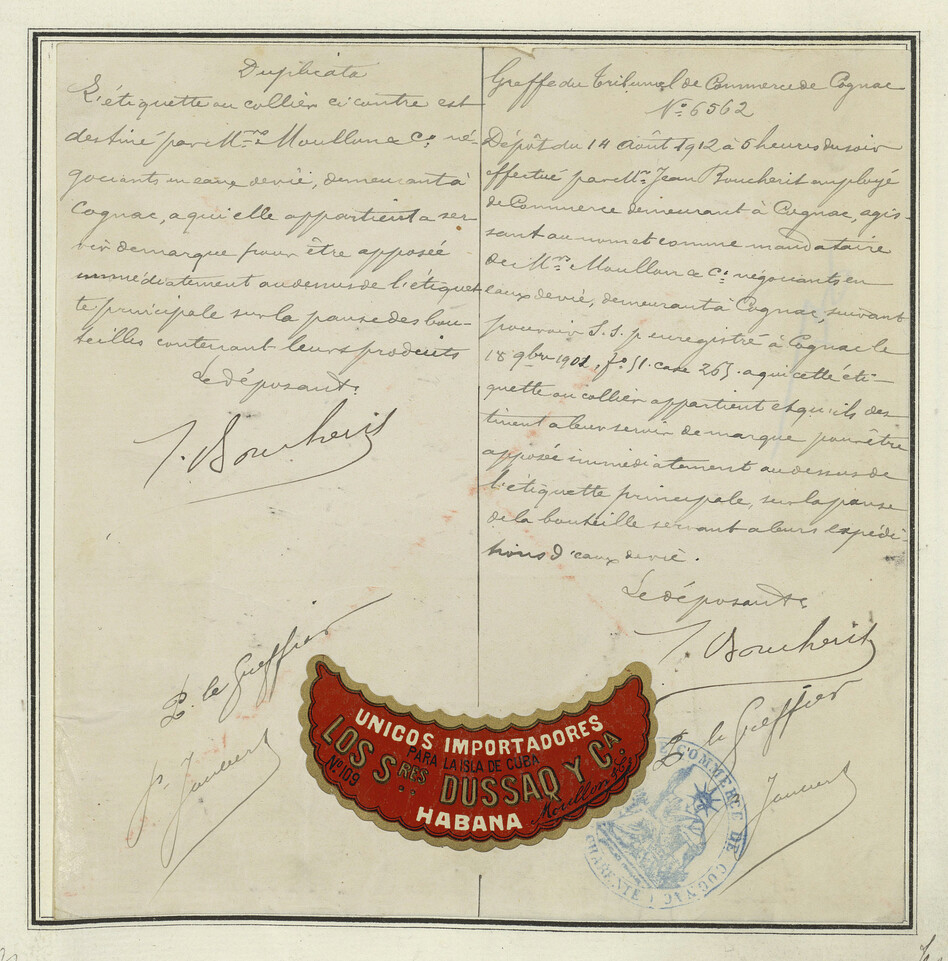 Duplicata
L'étiquette ou collier ci contre est
destiné par M.rs Moullon & C.o né-
gociants en eaux de vie, demeurant à
Cognac, a qui elle appartient a ser-
vir de marque pour être apposée
immédiatement au dessus de l'étiquet
te principale sur la panse des bou-
teilles contenant leurs produits
Le déposant.
J. Boucherit
P. le Greffier
Greffe du Tribunal de Commerce de Cognac
N.o 6562
Dépôt du 14 Août 1912 à 5 heures du soir
effectué par M.r Jean Boucherit employé
de Commerce demeurant à Cognac, agis-
sant au nom et comme mandataire
de M.rs Moullon & C.o négociants en
eaux de vie, demeurant à Cognac, suivant
pouvoir S.S.p enregistré à Cognac le
18 9bre 1901, fo 51. case 265. a qui cette éti-
quette ou collier appartient et qu'ils des-
tinent a leur servir de marque pour être
apposée immédiatement au dessus de
l'étiquette principale, sur la panse
de la bouteille servant a leurs expédi-
tions d'eaux de vie.
Le déposant.
J. Boucherit
P. le Greffier
UNICOS IMPORTADORES
PARA LA ISLA DE CUBA
LOS SRES DUSSAQ Y CA.
Nº 109
HABANA
Moullon & Co
COMMERCE DE COGNAC
CHARENTE